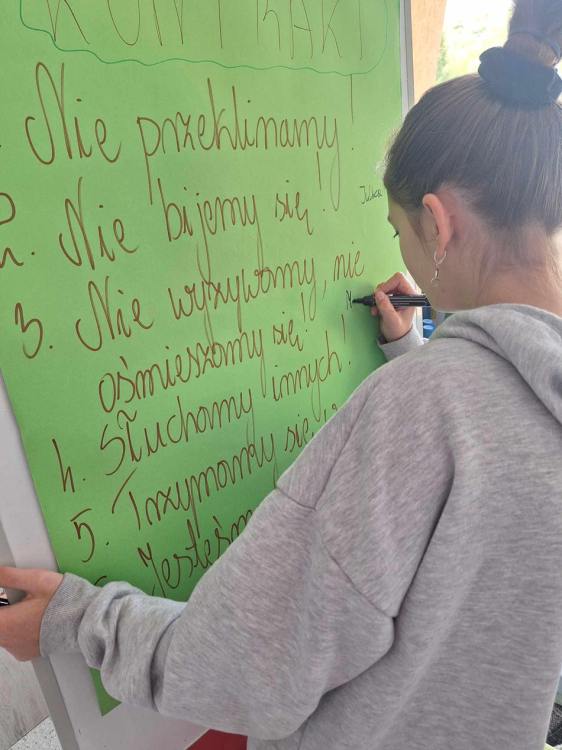 KONTRAKT
Nie przeklinamy!
2. Nie bijemy się!
3. Nie wyzywamy, nie
ośmieszamy się!
4. Słuchamy innych!
5. Trzymamy się
Jesteśm